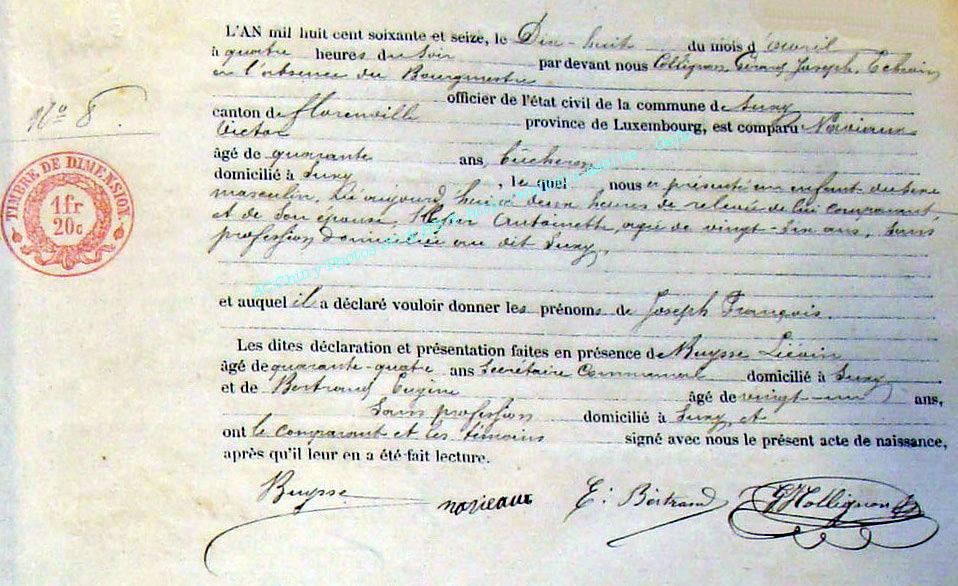 L'AN mil huit cent soixante et seize, le Dix-huit du mois d'avril
à quatre heures du Soir par devant nous Collignon Gérard Joseph, Echevin
en l'absence du Bourgmestre
officier de l'état civil de la commune de Suxy
canton de Florenville province de Luxembourg, est comparu Novieaux
Victor
âgé de quarante ans, bûcheron
domicilié à Suxy, lequel nous a présenté un enfant du sexe
masculin, né aujourd'hui à deux heures de relevée de lui comparant,
et de son épouse Antoinette, agée de vingt-six ans, sans
profession domiciliée au dit Suxy,
et auquel il a déclaré vouloir donner les prénoms de Joseph François.
Les dites déclaration et présentation faites en présence de Buysse Liévin
âgé de quarante-quatre ans Secrétaire Communal domicilié à Suxy
et de Bertrand Eugène âgé de vingt-un ans,
Sans profession domicilié à Suxy et
ont le comparant et les témoins signé avec nous le présent acte de naissance,
après qu'il leur en a été fait lecture.
Buysse novieaux E: Bertrand GJCollignon
N° 8
TIMBRE DE DIMENSION
1fr
20c
AGChiny-Photos